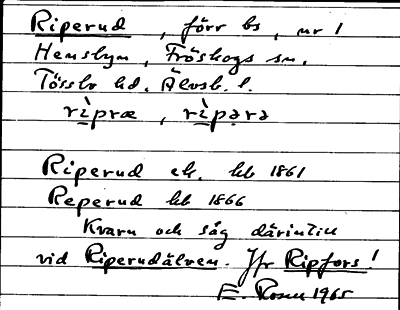 Riperud , förr bs , nr 1
Hensbyn , Fröskogs sn.
Tössbo hd. Älvsb. l.
rìpræ , rìpərə
Riperud ek. hb 1861
Reperud hb 1866
Kvarn och såg därintill
vid Riperudälven. Jfr Ripfors!
E. Rosen 1965